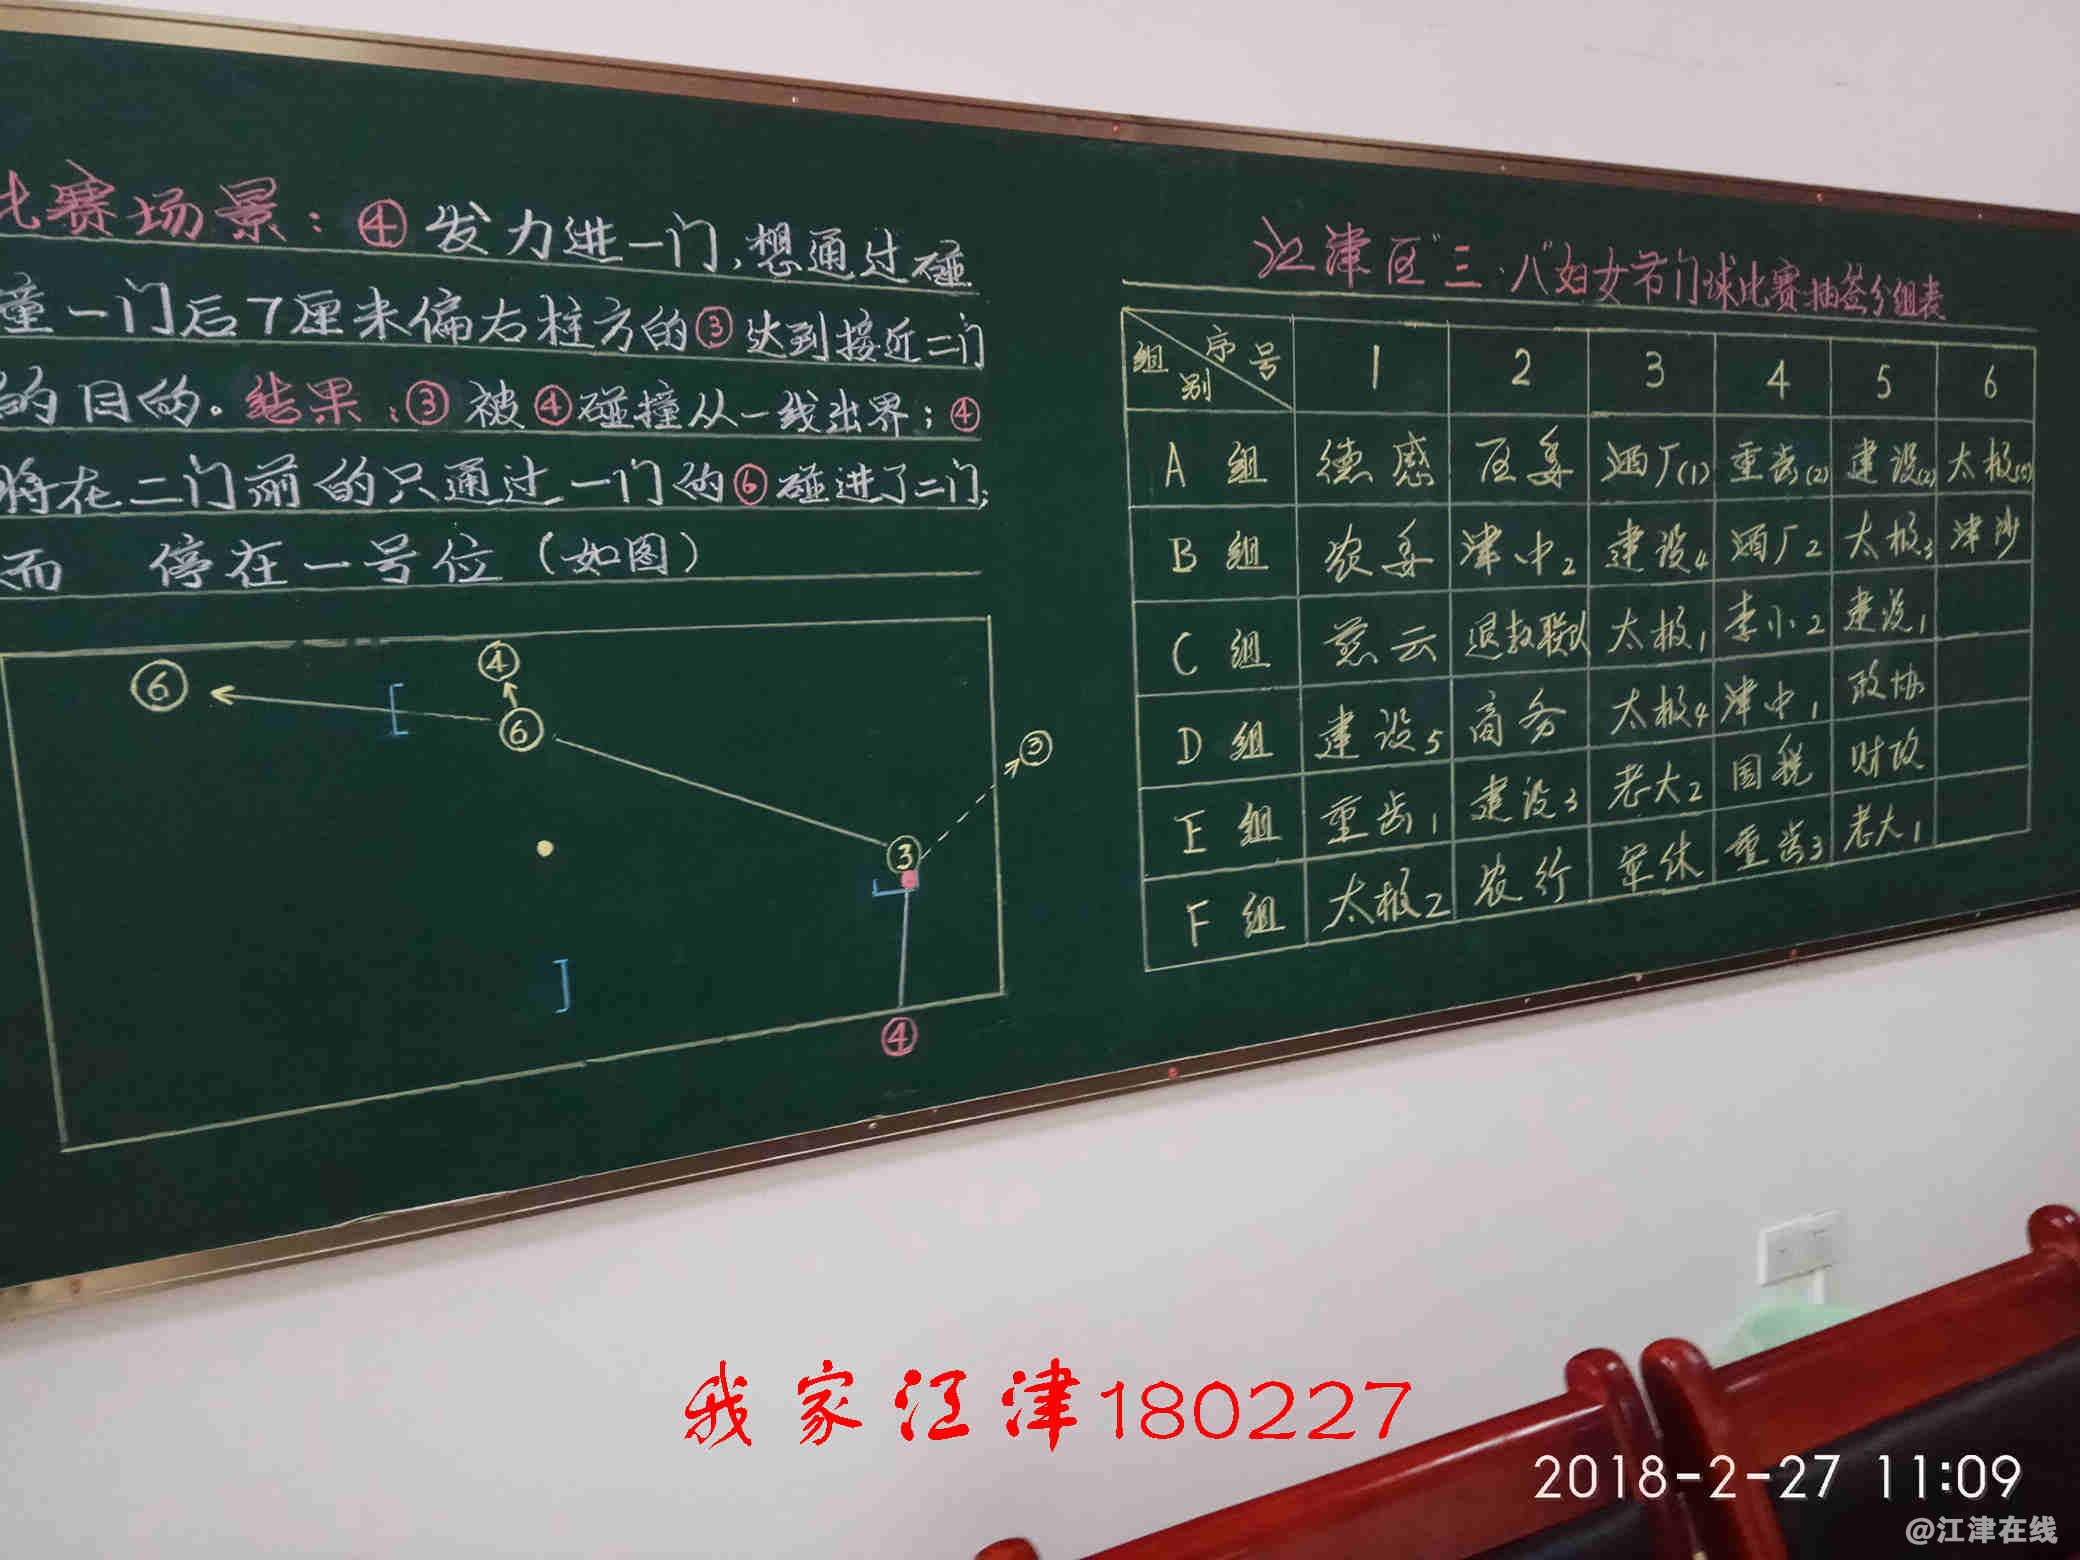 比赛场景：④发力进一门,想通过碰
撞一门后7厘米偏右柱方的③达到接近二门
的目的。结果：③被④碰撞从一线出界；④
将在二门前的只通过一门的⑥碰进了二门；
而 停在一号位（如图）
⑥ ④
⑥
③
③
④
江津区"三.八"妇女节门球比赛抽签分组表
组别 序号 1 2 3 4 5 6
A 组 德感 区委 酒厂(1) 重齿(2) 建设(2) 太极(5)
B 组 农委 津中2 建设4 酒厂2 太极3 津沙
C 组 慈云 退教联队 太极1 李小2 建设1
D 组 建设5 商务 太极4 津中1 政协
E 组 重齿1 建设3 老大2 国税 财政
F 组 太极2 农行 军休 重齿3 老大1
我家江津180227
2018-2-27 11:09
@江津在线